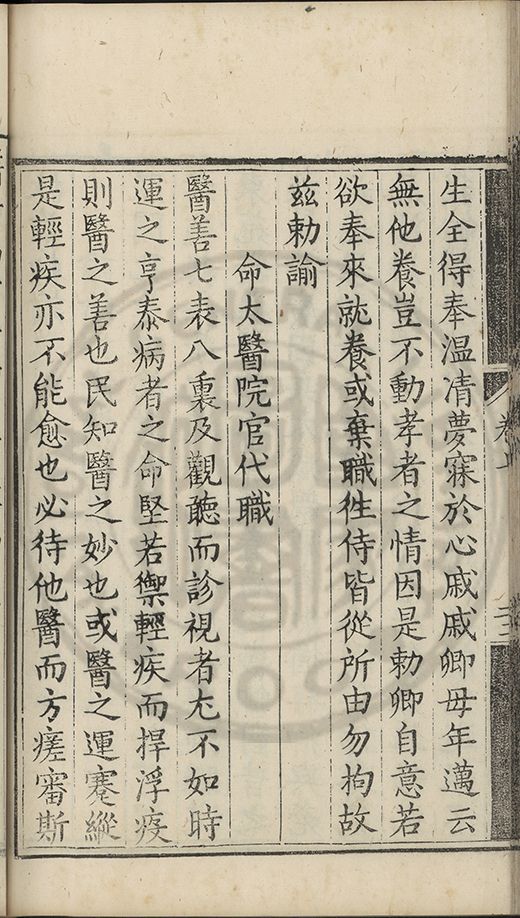 生全得奉温凊夢寐於心戚戚卿毋年邁云
無他養豈不動孝者之情因是勅卿自意若
欲奉來就養或棄職徃侍皆從所由勿拘故
兹勅諭
命太醫院官代職
醫善七表八裏及觀聽而診視者尢不如時
運之亨泰病者之命堅若禦輕疾而捍浮疫
則醫之善也民知醫之妙也或醫之運蹇縱
是輕疾亦不能愈也必待他醫而方瘥審斯
卷上